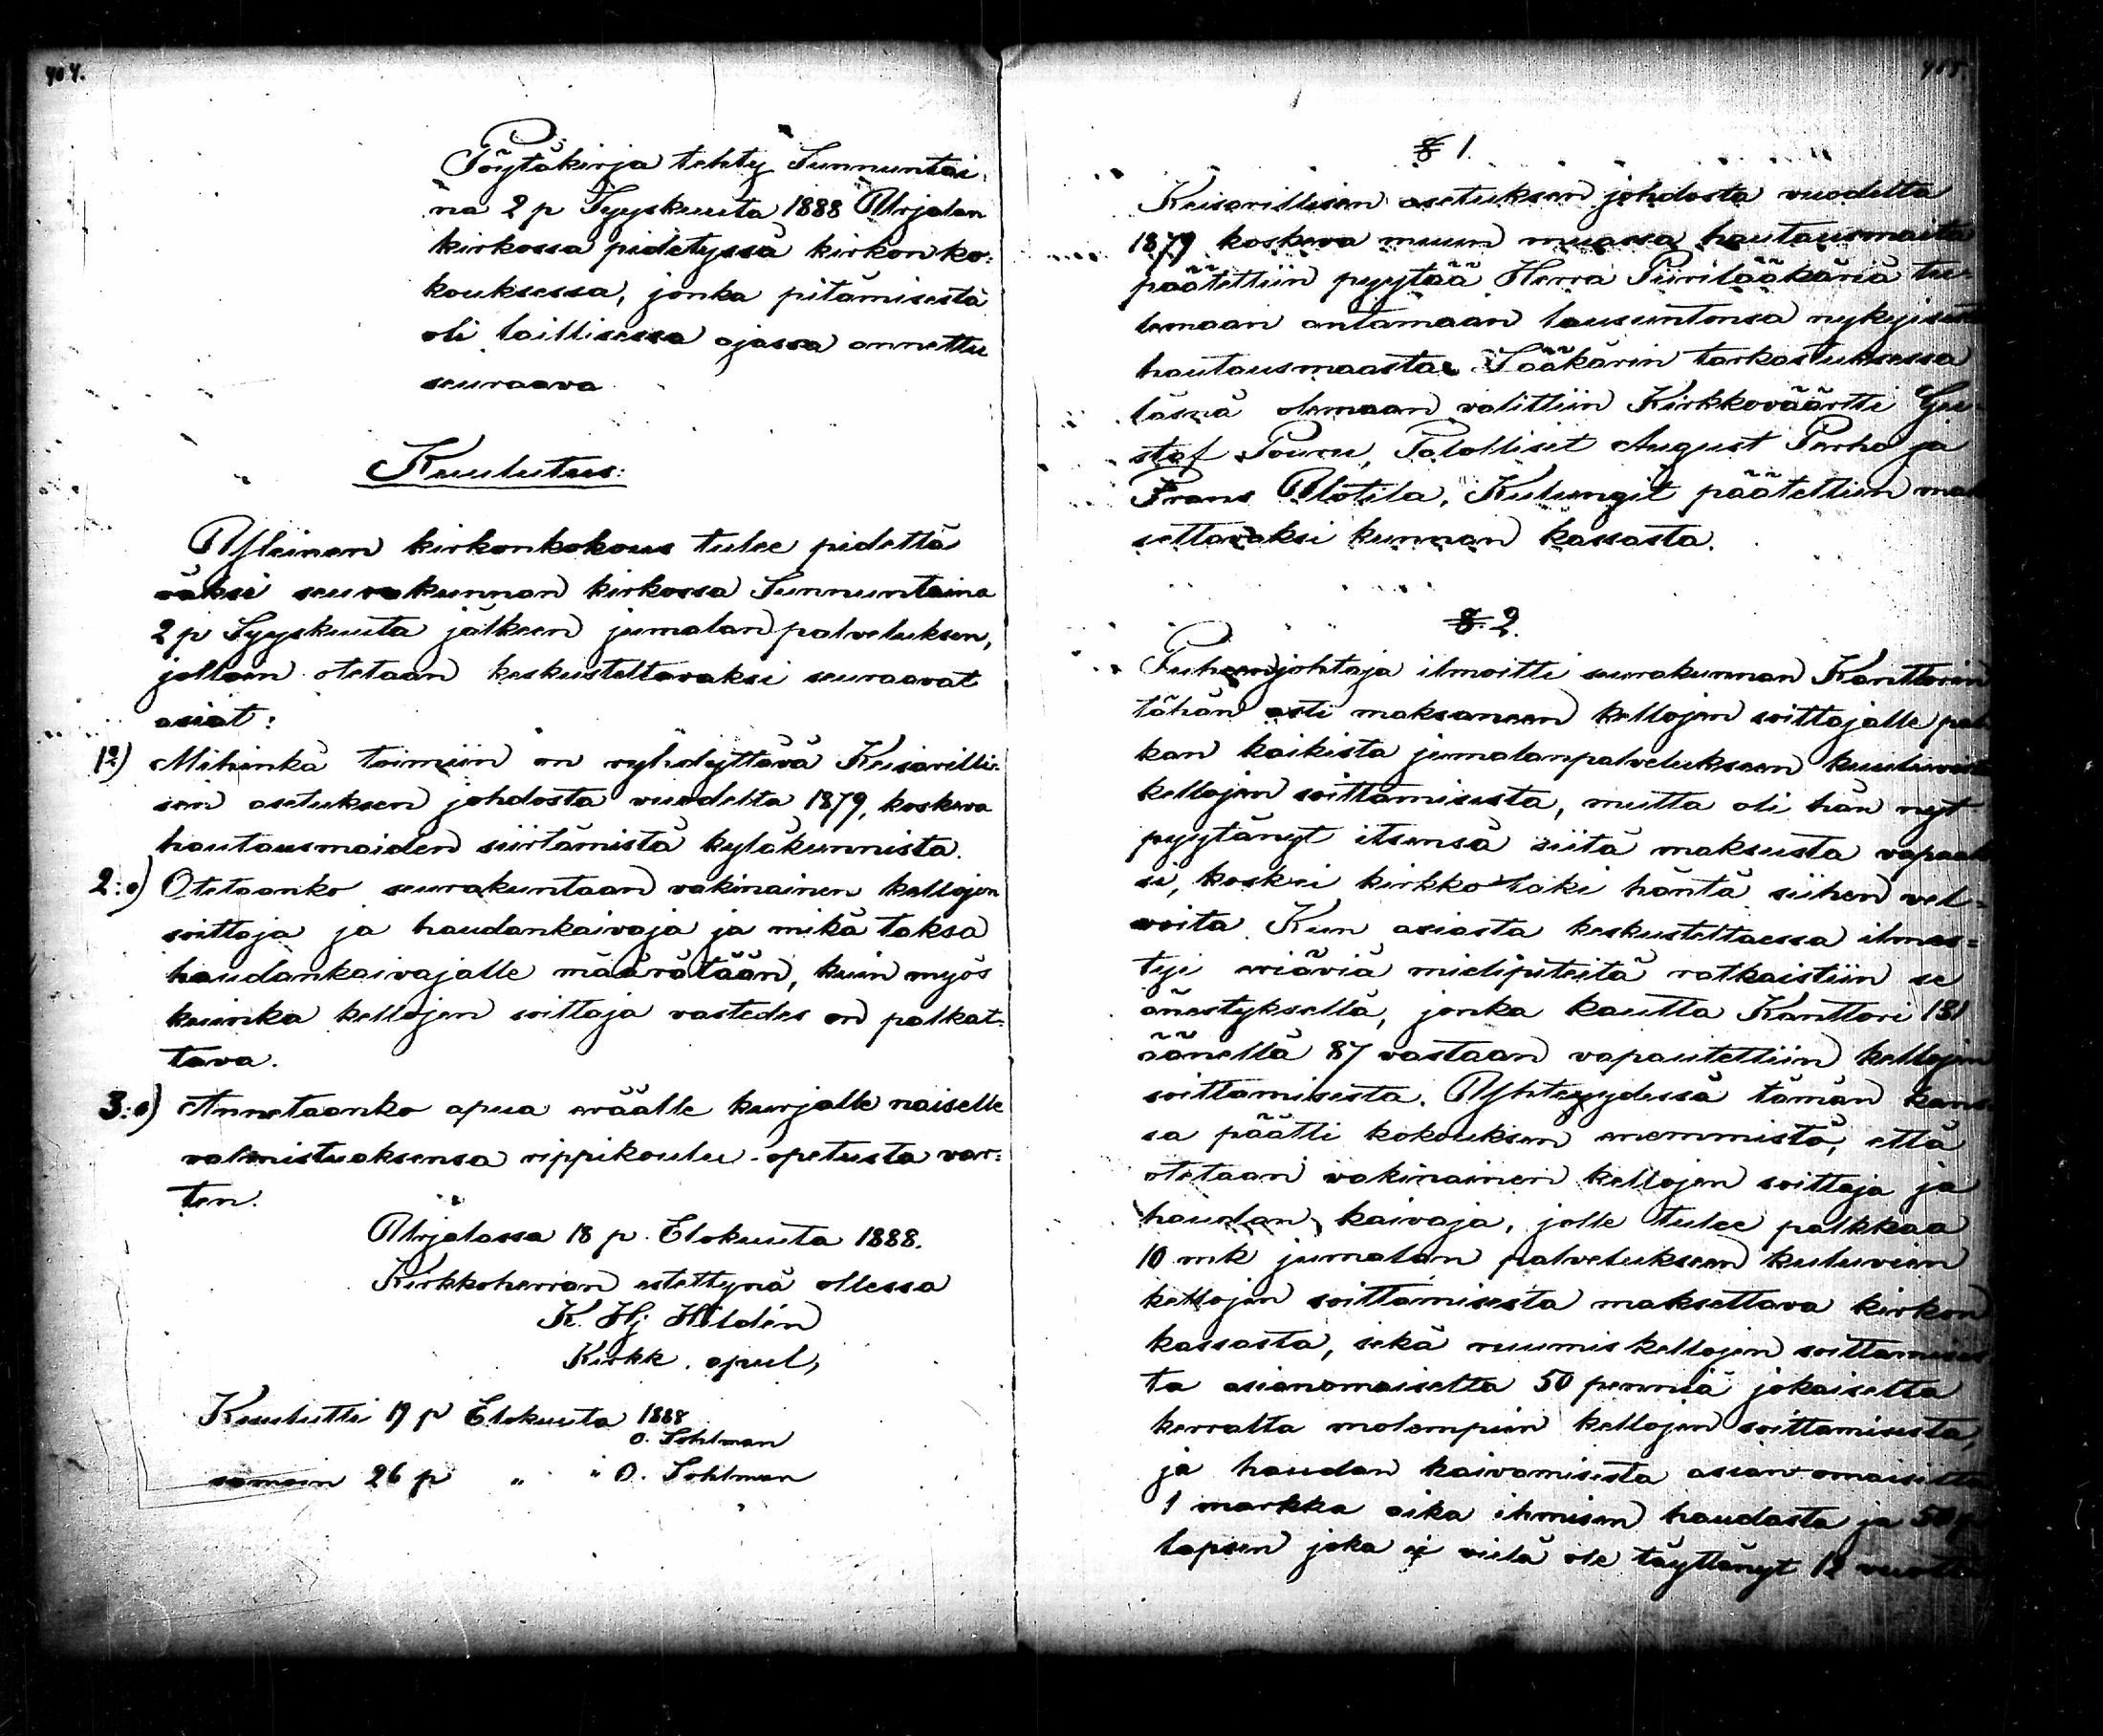 404.
Pöytäkirja tehty Sunnuntai-
na 2 p Syyskuuta 1888 Urjalan
kirkossa pidetyssä kirkonko-
kouksessa, jonka pitämisestä
oli laillisessa ajassa annettu
seuraava
Kuulutus:
Yleinen kirkonkokous tulee pidettä
väksi seurakunnan kirkossa Sunnuntaina
2 p Syyskuuta jälkeen jumalanpalveluksen,
jolloin otetaan keskusteltavaksi seuraavat
asiat:
1o) Mihinkä toimiin on ryhdyttävä Keisarilli-
sen asetuksen johdosta vuodelta 1879, koskeva
hautausmaiden siirtämistä kyläkunnista.
2:o) Otetaanko seurakuntaan vakinainen kellojen
soittaja ja haudankaivaja ja mikä taksa
haudankaivajalle määrätään, kuin myös
kuinka kellojen soittaja vastedes on palkat-
tava.
3:o) Annetaanko apua eräälle kurjalle naiselle
valmistuaksensa rippikoulu-opetusta var-
ten.
Urjalassa 18 p. Elokuuta 1888.
Kirkkoherran estettynä ollessa
K. Hj Hildén
Kirkk. apul,
Kuulutti 19 p Elokuuta 1888
O. Sohlman
samoin 26 p " " O. Sohlman
405.
§ 1.
Keisarillisen asetuksen johdosta vuodelta
1879 koskeva muun muassa hautausmaita
päätettiin pyytää Herra Piirilääkäriä tu-
lemaan antamaan lausuntonsa nykyisestä
hautausmaasta. Lääkärin tarkastuksessa
läsnä olemaan valittiin Kirkkoväärtti Gu-
staf Pouru, Talolliset August Parha ja
Frans Ulotila. Kulungit päätettiin mak
settavaksi kunnan kassasta.
§. 2.
Puheenjohtaja ilmoitti seurakunnan Kanttorin
tähän asti maksaneen kellojen soittajalle pal
kan kaikista jumalanpalvelukseen kuuluvista
kellojen soittamisesta, mutta oli hän nyt
pyytänyt itsensä siitä maksusta vapaak
si, koskei kirkkolaki häntä siihen vel-
voita. Kun asiasta keskusteltaessa ilmes-
tyi eriäviä mielipiteitä ratkaistiin se
änestyksellä, jonka kautta Kanttori 131
äänellä 87 vastaan vapautettiin kellojen
soittamisesta. Yhteyydessä tämän kans
sa päätti kokouksen enemmistö, että
otetaan vakinainen kellojen soittaja ja
haudan kaivaja, jolle tulee palkkaa
10 mk jumalan palvelukseen kuluvein
kellojen soittamisesta maksettava kirkon
kassasta, sekä ruumis kellojen soittamises
ta asianomaiselta 50 penniä jokaiselta
kerralta molempiin kellojen soittamisesta,
ja haudan kaivamisesta asianomaiselta
1 markka aika ihmisen haudasta ja 50 p
lapsen joka ei vielä ole täyttänyt 12 vuotta